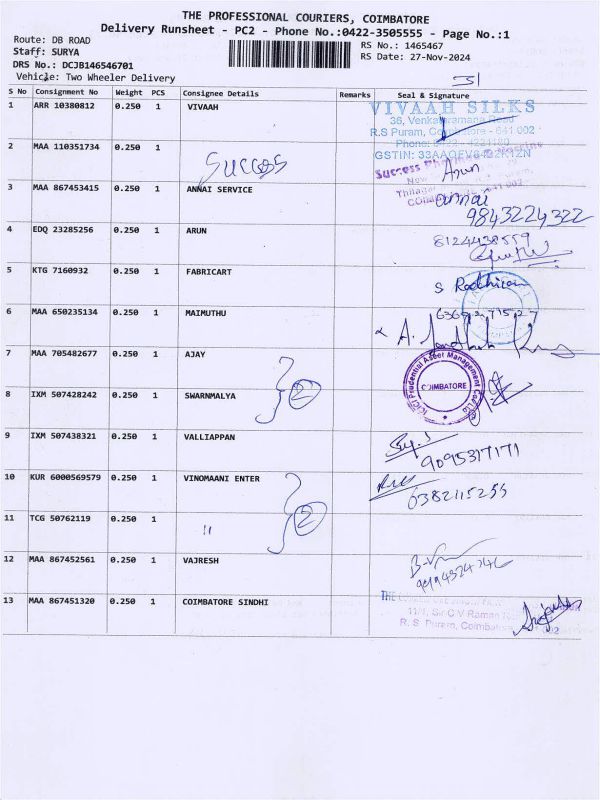 THE PROFESSIONAL COURIERS, COIMBATORE
Delivery Runsheet - PC2 - Phone No.:0422-3505555 - Page No.:1
Route: DB ROAD
RS No.: 1465467
Staff: SURYA
RS Date: 27-Nov-2024
DRS No.: DCJB146546701
Vehicle: Two Wheeler Delivery
S No Consignment No Weight PCS Consignee Details Remarks Seal & Signature
1 ARR 10380812 0.250 1 VIVAAH
VIVAAH SILKS
36, Venkatramana Road
R.S Puram, Coimbatore - 641 002
Phone: 0422 - 4221180
2 MAA 110351734 0.250 1
Success
Success
Arun
3 MAA 867453415 0.250 1 ANNAI SERVICE
annai
9843224322
4 EDQ 23285256 0.250 1 ARUN
8124438559
5 KTG 7160932 0.250 1 FABRICART
S
6 MAA 650235134 0.250 1 MAIMUTHU
7 MAA 705482677 0.250 1 AJAY
ICICI Prudential Asset Management Co. Ltd
COIMBATORE
8 IXM 507428242 0.250 1 SWARNMALYA
2
9 IXM 507438321 0.250 1 VALLIAPPAN
9095317171
10 KUR 6000569579 0.250 1 VINOMAANI ENTER
6382115255
11 TCG 50762119 0.250 1 "
2
12 MAA 867452561 0.250 1 VAJRESH
13 MAA 867451320 0.250 1 COIMBATORE SINDHI
THE
11/1, Sir C V Raman
R. S. Puram, Coimbatore
002